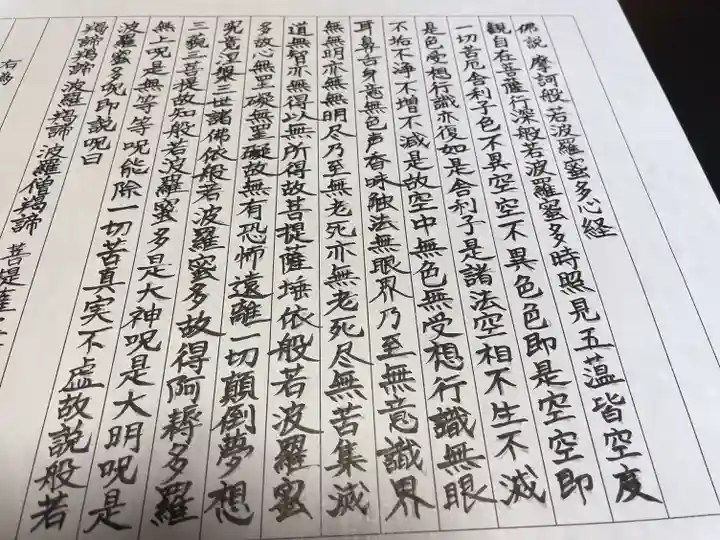 佛説 摩訶般若波羅蜜多心経
觀自在菩薩行深般若波羅蜜多時照見五蕰皆空度
一切苦厄舎利子色不異空空不異色色即是空空即
是色受想行識亦復如是舎利子是諸法空相不生不滅
不垢不浄不增不減是故空中無色無受想行識無眼
耳鼻舌身意無色声香味触法無眼界乃至無意識界
無無明亦無無明尽乃至無老死亦無老死尽無苦集滅
道無智亦無得以無所得故菩提薩埵依般若波羅蜜
多故心無罣礙無罣礙故無有恐怖遠離一切顛倒夢想
究竟涅槃三世諸佛依般若波羅蜜多故得阿耨多羅
三藐三菩提故知般若波羅蜜多是大神呪是大明呪是
無上呪是無等等呪能除一切苦真実不虚故説般若
波羅蜜多呪即説呪曰
羯諦羯諦 波羅羯諦 波羅僧羯諦 菩提薩
右為